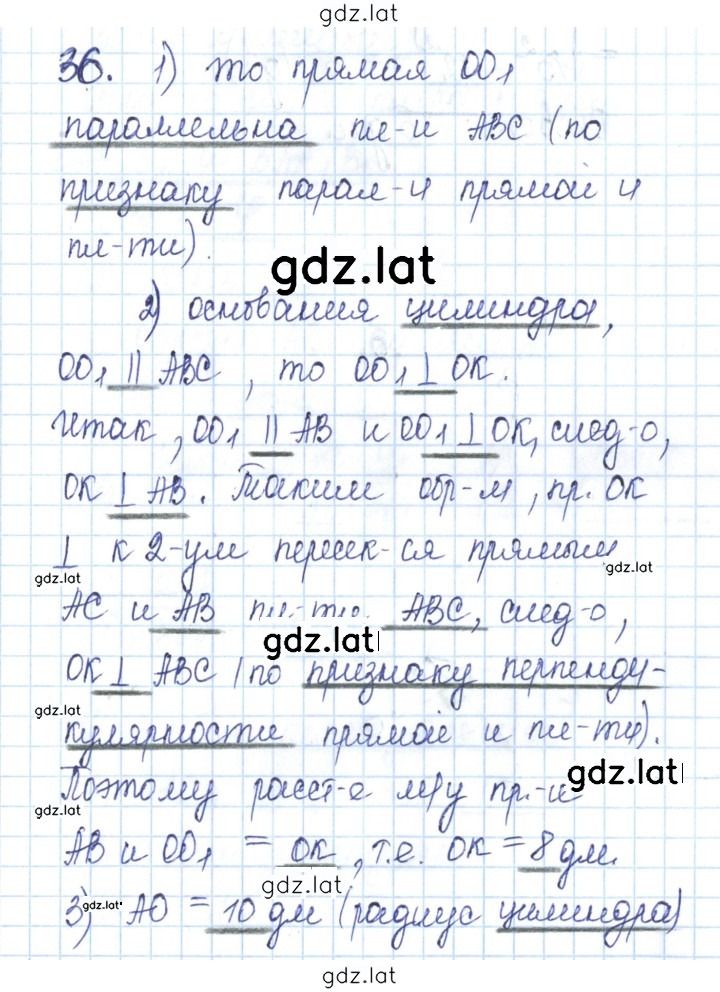 gdz.lat
36. 1) то прямая OO₁
параллельна пл-и ABC (по
признаку парал-и прямой и
пл-ти).
gdz.lat
2) основания цилиндра,
OO₁ || ABC, то OO₁ ⊥ OK.
Итак, OO₁ || AB и OO₁ ⊥ OK, след-о,
OK ⊥ AB. Таким обр-м, пр. OK
⊥ к 2-ум пересек-ся прямым
gdz.lat gdz.lat
AC и AB пл-ти. ABC, след-о,
gdz.lat
OK ⊥ ABC (по признаку перпенди-
gdz.lat
кулярности прямой и пл-ти).
gdz.lat
Поэтому расст-е м/у пр.-и
gdz.lat
AB и OO₁ = OK, т.е. OK = 8 дм.
gdz.lat
3) gdz.lat AO = 10 дм (радиус цилиндра)
gdz.lat